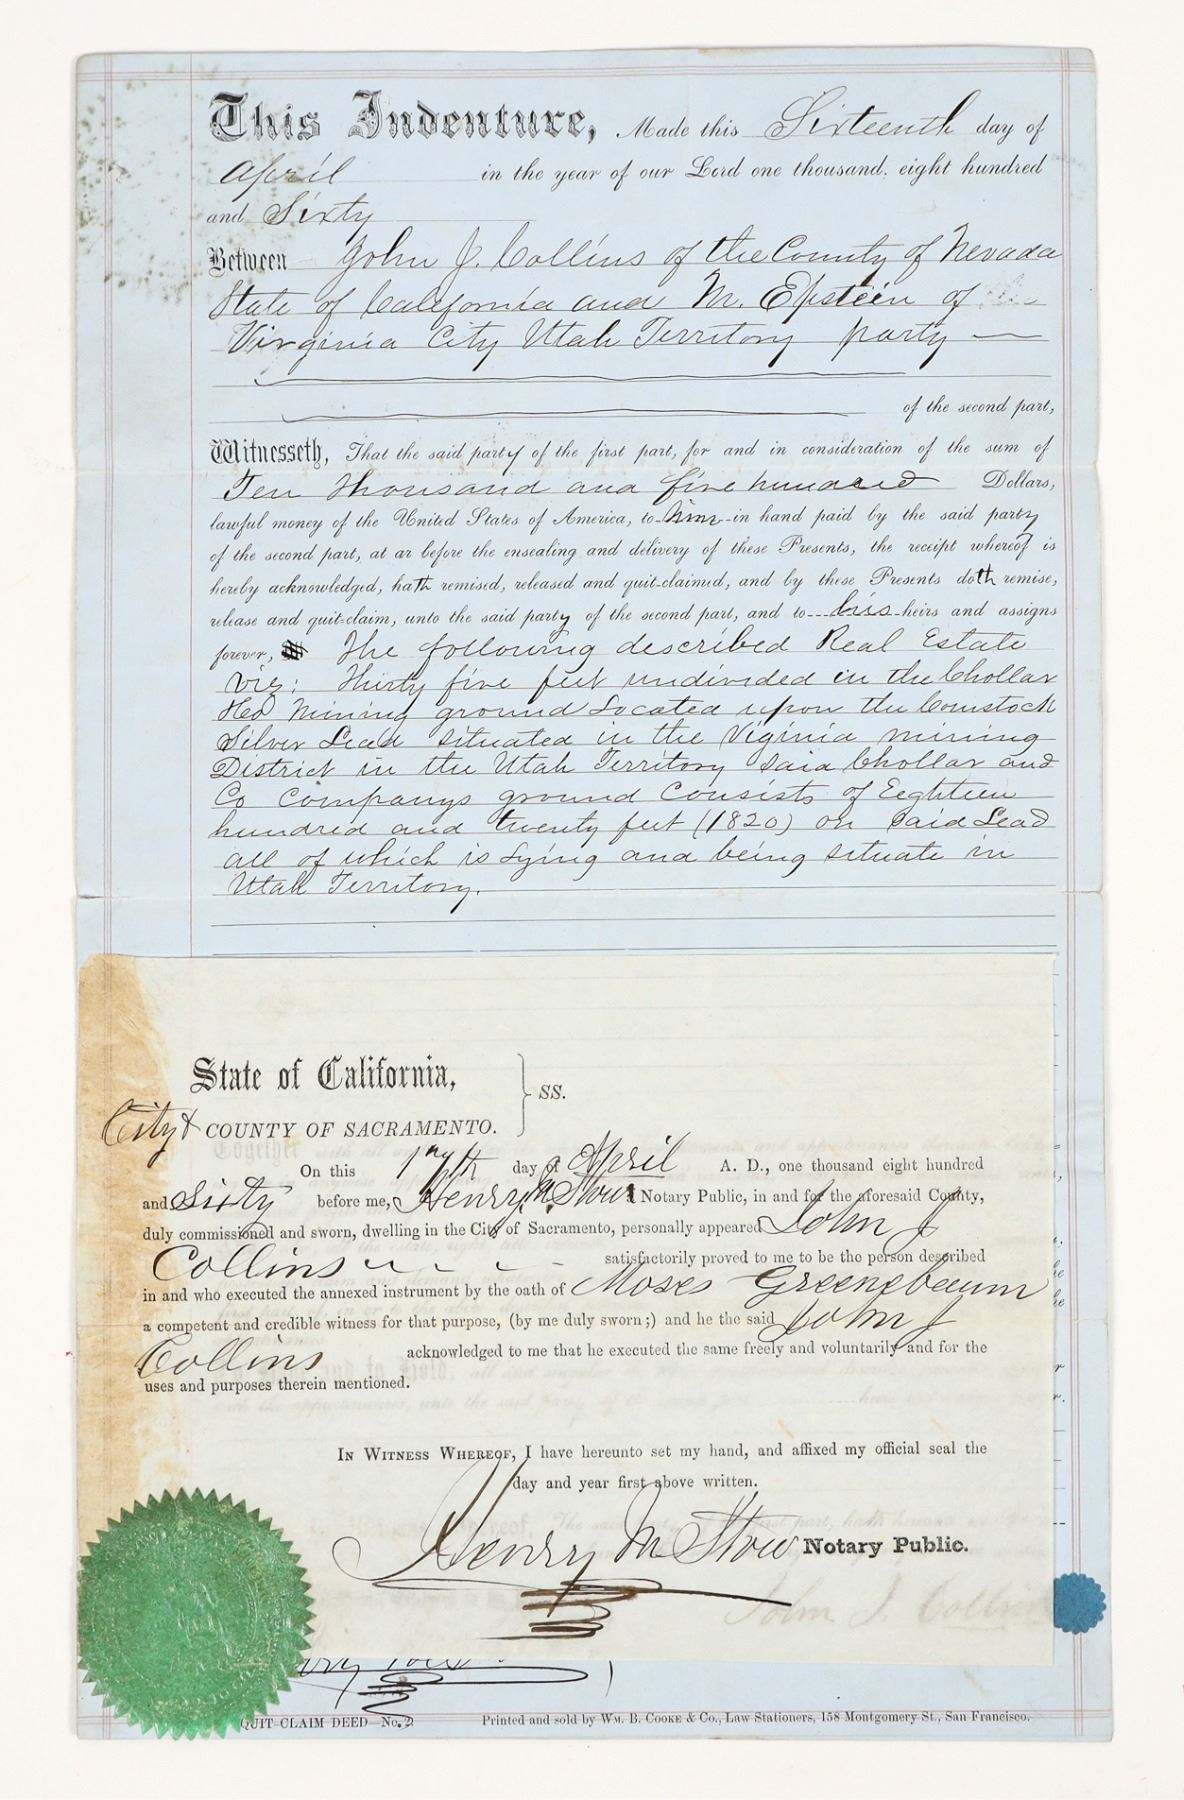 This Indenture, Made this Sixteenth day of
April in the year of our Lord one thousand, eight hundred
and Sixty
Between John J. Collins of the County of Nevada
State of California and M. Epstein of
Virginia City Utah Territory party
of the second part,
Witnesseth, That the said party of the first part, for and in consideration of the sum of
Ten thousand and five hundred Dollars,
lawful money of the United States of America, to him in hand paid by the said party
of the second part, at ar before the ensealing and delivery of these Presents, the receipt whereof is
hereby acknowledged, hath remised, released and quit-claimed, and by these Presents doth remise,
release and quit-claim, unto the said party of the second part, and to his heirs and assigns
forever, The following described Real Estate
Viz: Thirty five feet undivided in the Chollar
&Co Mining ground Located upon the Comstock
Silver Lead situated in the Viginia mining
District in the Utah Territory said Chollar and
Co Companys ground Consists of Eighteen
hundred and twenty feet (1820) on said Lead
all of which is Lying and being situate in
Utah Territory.
State of California,
City & COUNTY OF SACRAMENTO. } SS.
On this 17th day of April A. D., one thousand eight hundred
and sixty before me, Henry M Stow Notary Public, in and for the aforesaid County,
duly commissioned and sworn, dwelling in the City of Sacramento, personally appeared John J
Collins satisfactorily proved to me to be the person described
in and who executed the annexed instrument by the oath of Moses Greenebaum
a competent and credible witness for that purpose, (by me duly sworn;) and he the said John J
Collins acknowledged to me that he executed the same freely and voluntarily and for the
uses and purposes therein mentioned.
IN WITNESS WHEREOF, I have hereunto set my hand, and affixed my official seal the
day and year first above written.
Henry M Stow Notary Public.
John J. Collins
QUIT-CLAIM DEED—No. 2 Printed and sold by WM. B. COOKE & Co., Law Stationers, 158 Montgomery St., San Francisco.